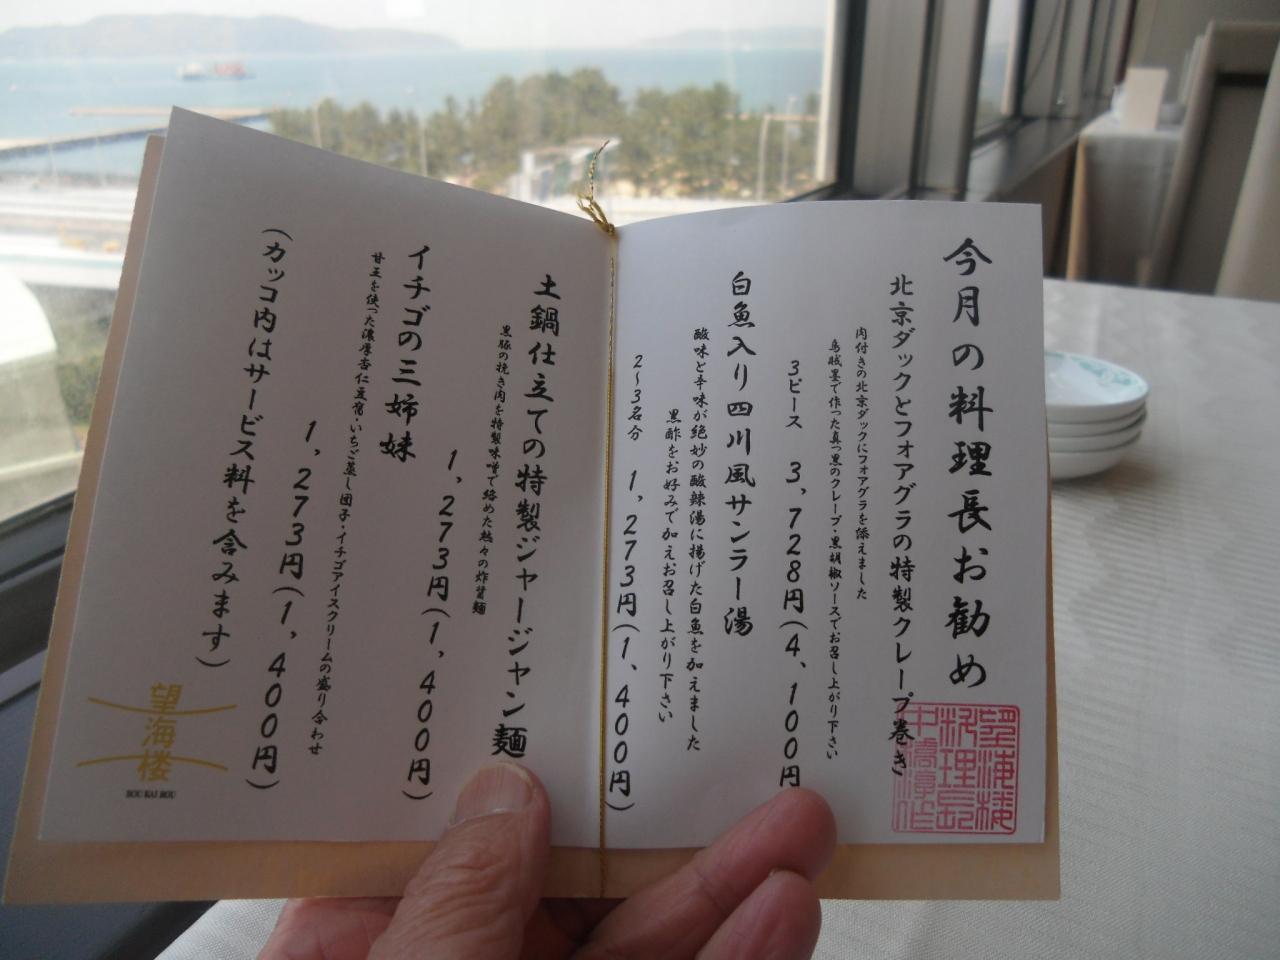 今月の料理長お勧め
北京ダックとフォアグラの特製クレープ巻き
肉付きの北京ダックにフォアグラを添えました
烏賊墨で作った真っ黒のクレープ・黒胡椒ソースでお召し上がり下さい
3ピース 3,728円(4,100円
白魚入り四川風サンラー湯
酸味と辛味が絶妙の酸辣湯に揚げた白魚を加えました
黒酢をお好みで加えお召し上がり下さい
2〜3名分 1,273円(1,400円)
土鍋仕立ての特製ジャージャン麺
黒豚の挽き肉を特製味噌で絡めた熱々の炸醤麺
1,273円(1,400円)
イチゴの三姉妹
甘王を使った濃厚杏仁豆腐・いちご蒸し団子・イチゴアイスクリームの盛り合わせ
1,273円(1,400円)
(カッコ内はサービス料を含みます)
望海楼
BOU KAI ROU
望海楼
料理長